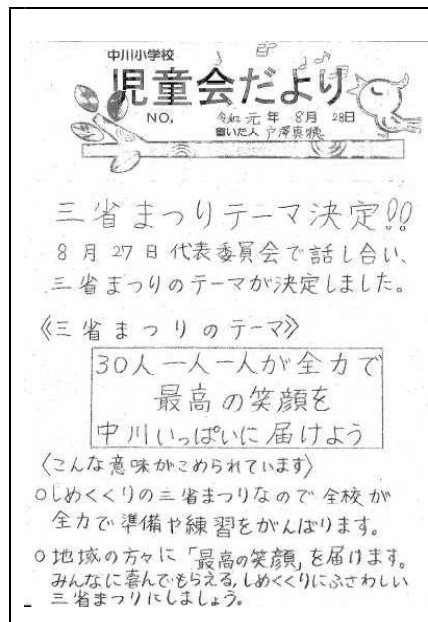 中川小学校
児童会だより
NO. 令和元年 8月 28日
書いた人 戸澤真穂
三省まつりテーマ決定!!
8月27日代表委員会で話し合い、
三省まつりのテーマが決定しました。
《三省まつりのテーマ》
30人一人一人が全力で
最高の笑顔を
中川いっぱいに届けよう
〈こんな意味がこめられています〉
○しめくくりの三省まつりなので全校が
全力で準備や練習をがんばります。
○地域の方々に「最高の笑顔」を届けます。
みんなに喜んでもらえる、しめくくりにふさわしい
三省まつりにしましょう。